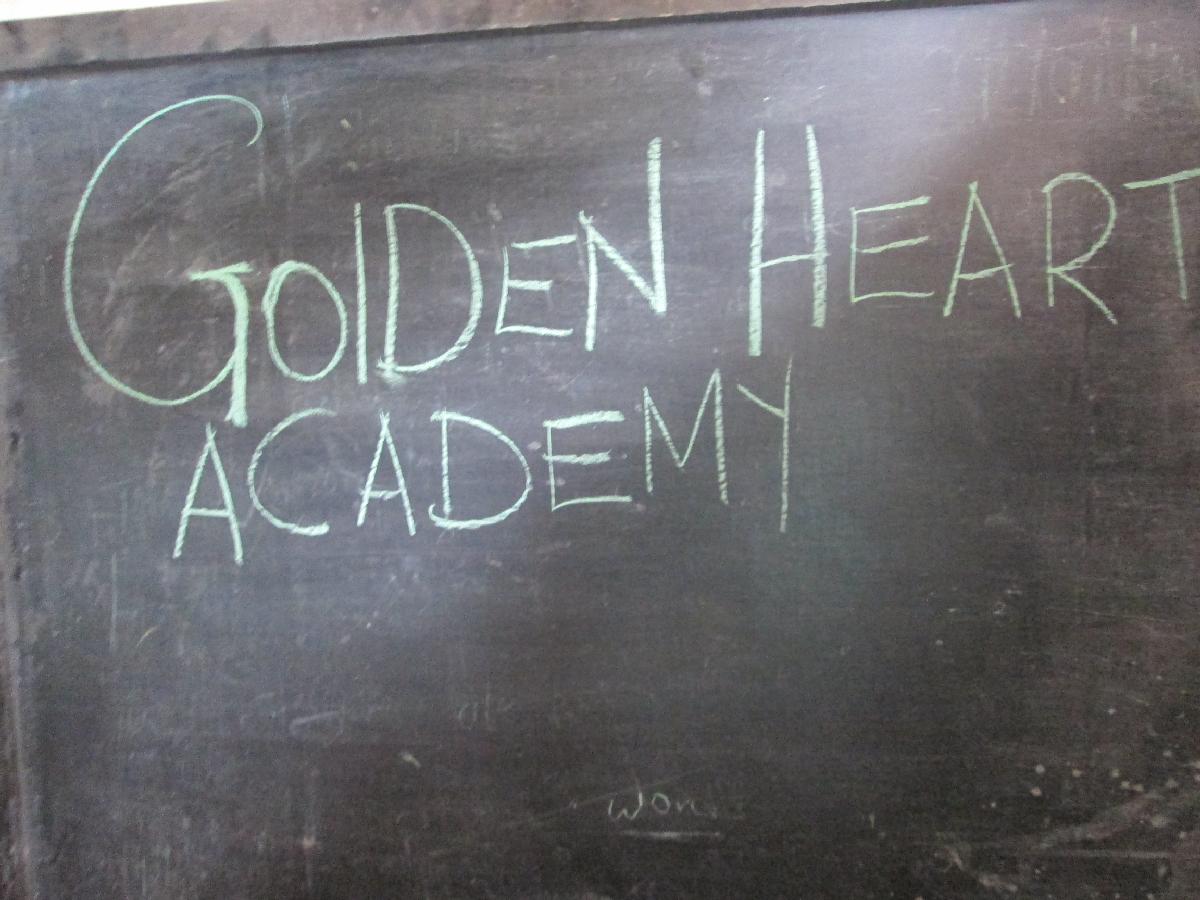 GOlDEN HEART
ACADEMY